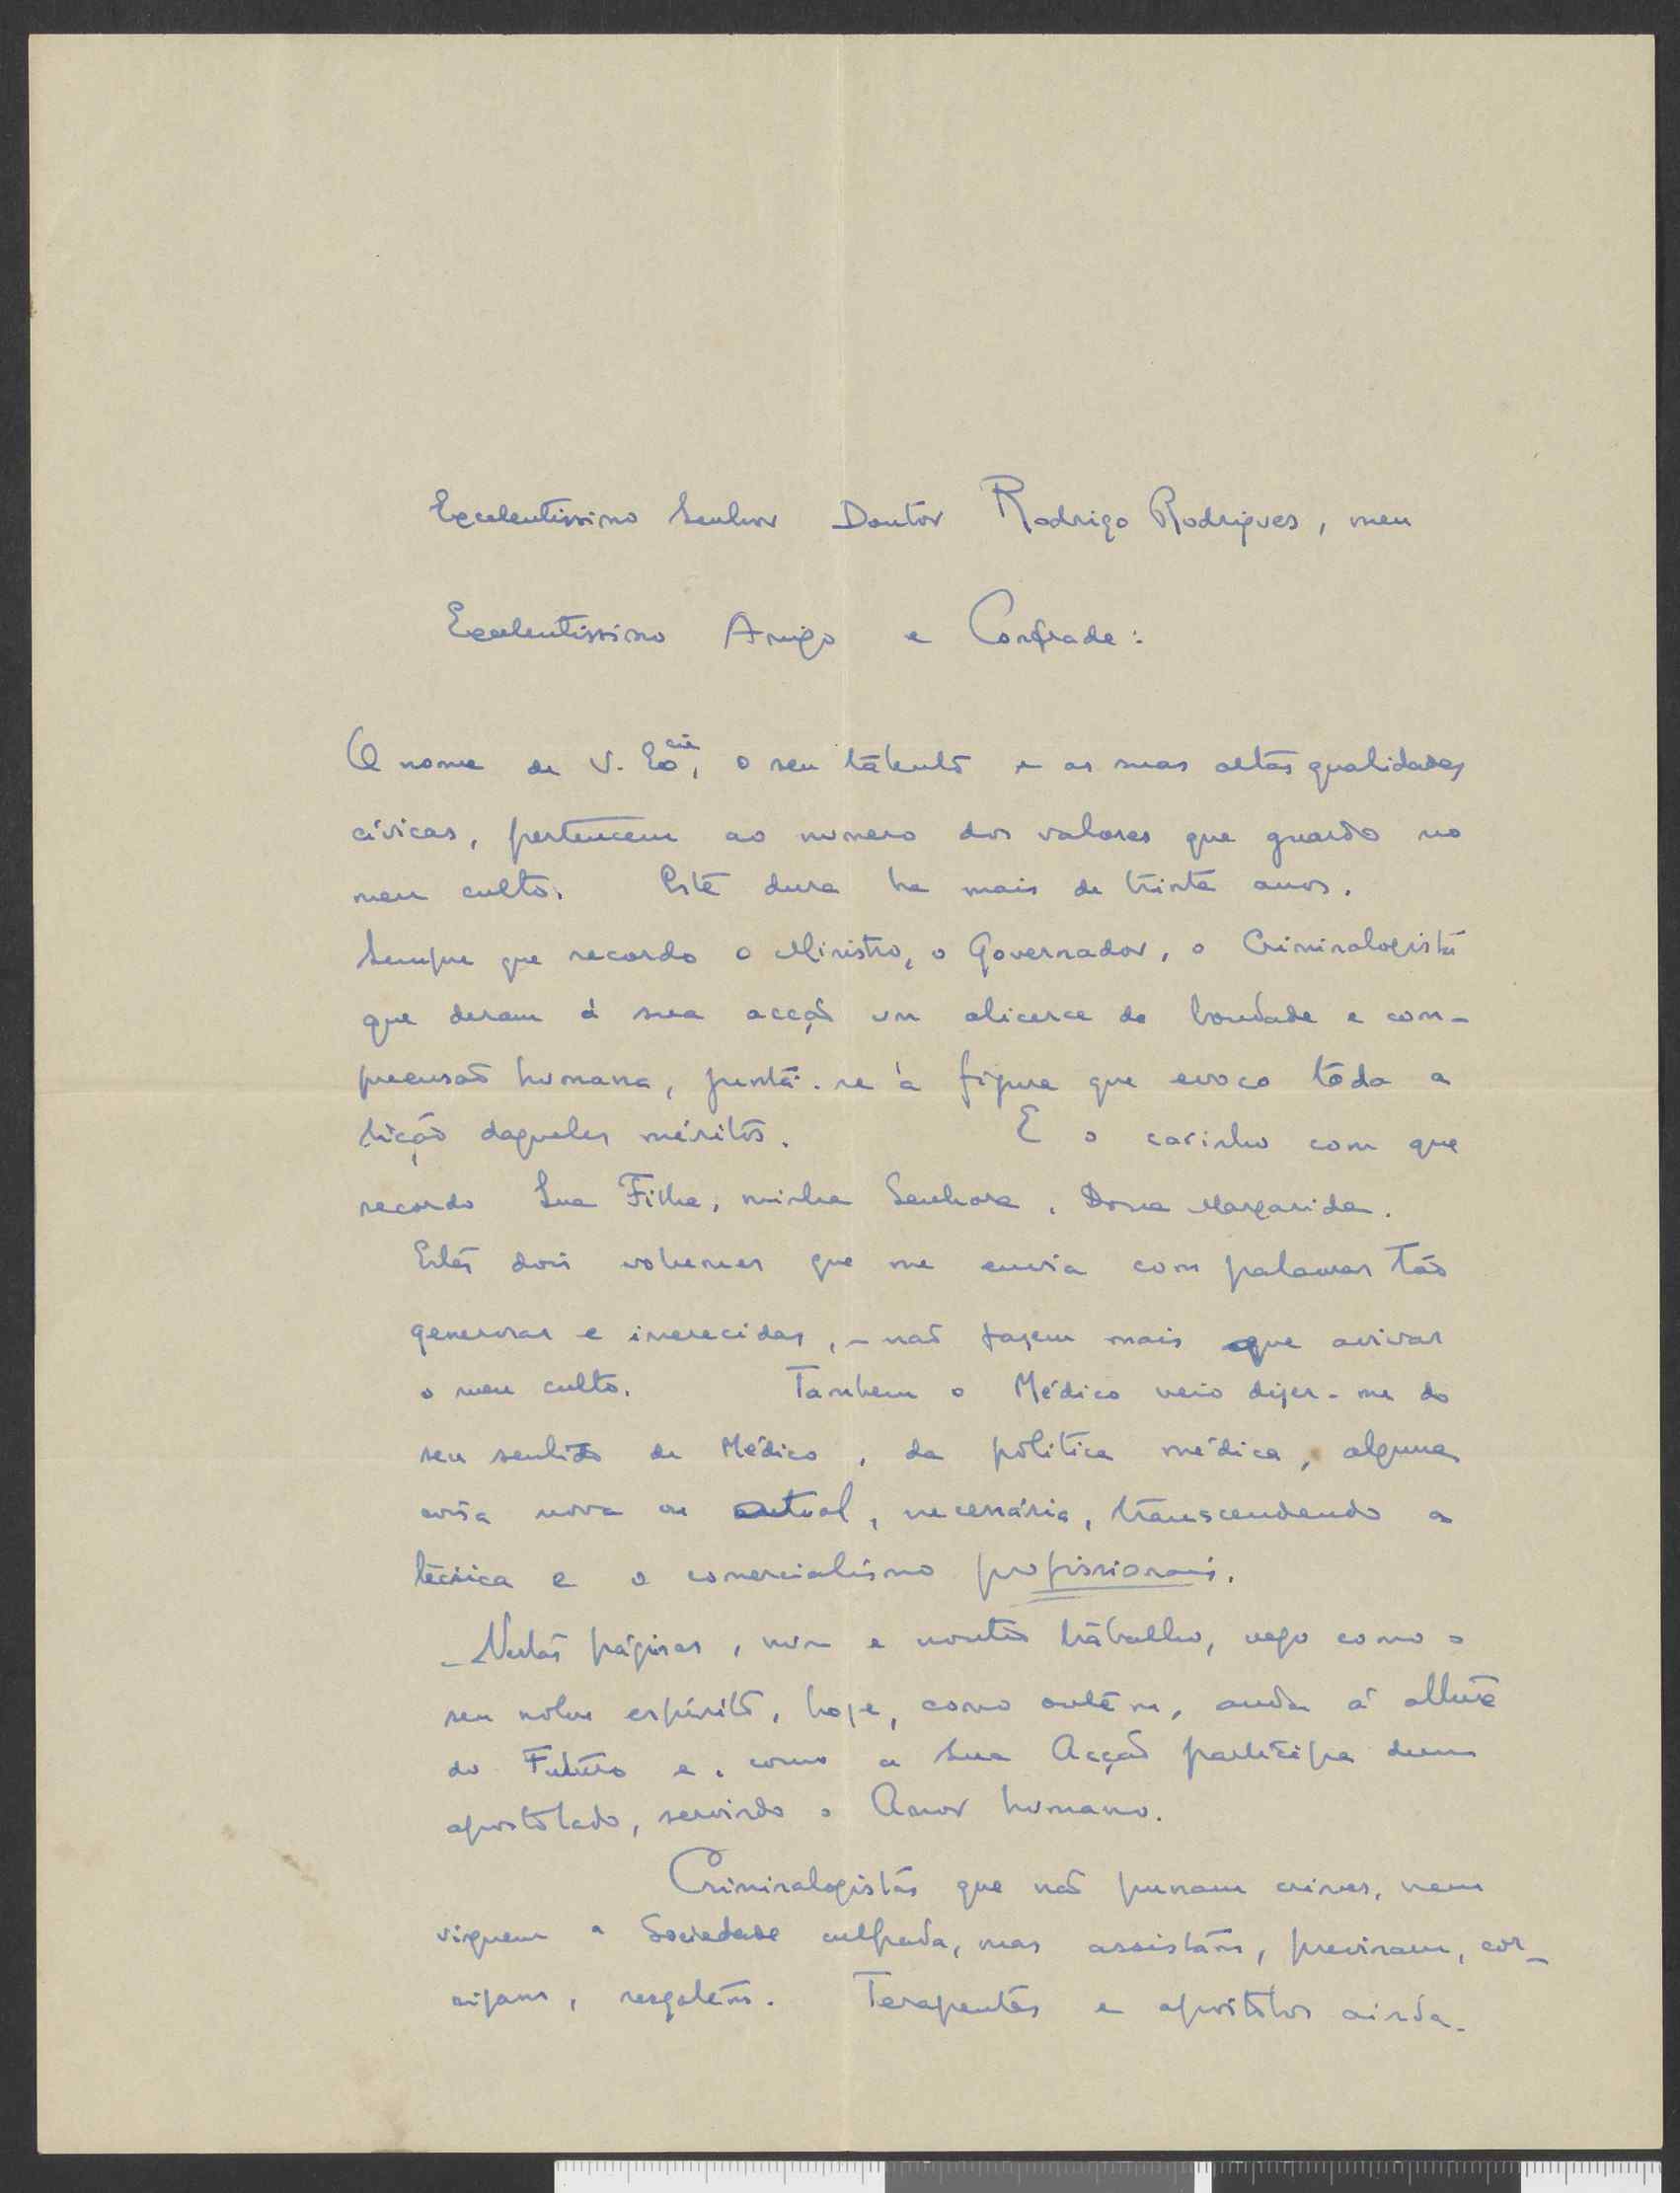 Excelentissimo Senhor Doutor Rodrigo Rodrigues, meu
Excelentissimo Amigo e Confrade:
O nome de V. Exciª, o seu talento e as suas altas qualidades
civicas, pertencem ao numero dos valores que guardo no
meu culto. Este dura ha mais de trinta anos.
Sempre que recordo o Ministro, o Governador, o Criminalogista
que deram á sua acção um alicerce de bondade e com-
preensão humana, junta-se á figura que evoco toda a
lição daqueles méritos. E o carinho com que
recordo Sua Filha, minha Senhora, Dona Margarida.
Estes dois volumes que me envia com palavras tão
generosas e imerecidas, - não fazem mais que avivar
o meu culto. Tambem o Médico veio dizer-me do
seu sentido de Médico, da politica médica, alguma
coisa nova ou actual, necessária, transcendendo a
técnica e o comercialismo profissionais.
- Nestas páginas, num e noutro trabalho, vejo como o
seu nobre espirito, hoje, como ontem, anda á altura
do Futuro e, como a Sua Acção participa dum
apostolado, servindo o Amor humano.
Criminalogistas que não punam crimes, nem
vinguem a Sociedade culpada, mas assistam, previnam, cor-
rijam, resgatem. Terapeutas e apostolos ainda.